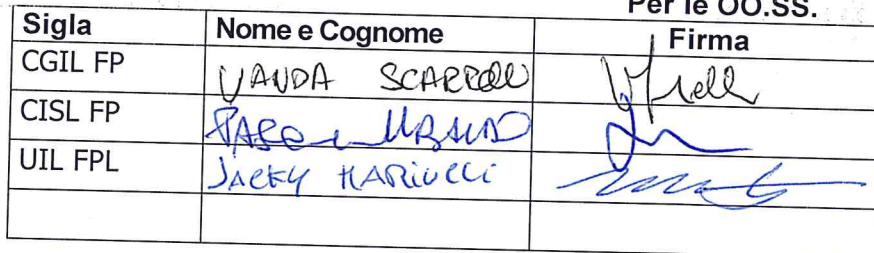 Per le OO.SS.
Sigla Nome e Cognome Firma
CGIL FP VANDA
CISL FP
UIL FPL JACKY MARIUCCI